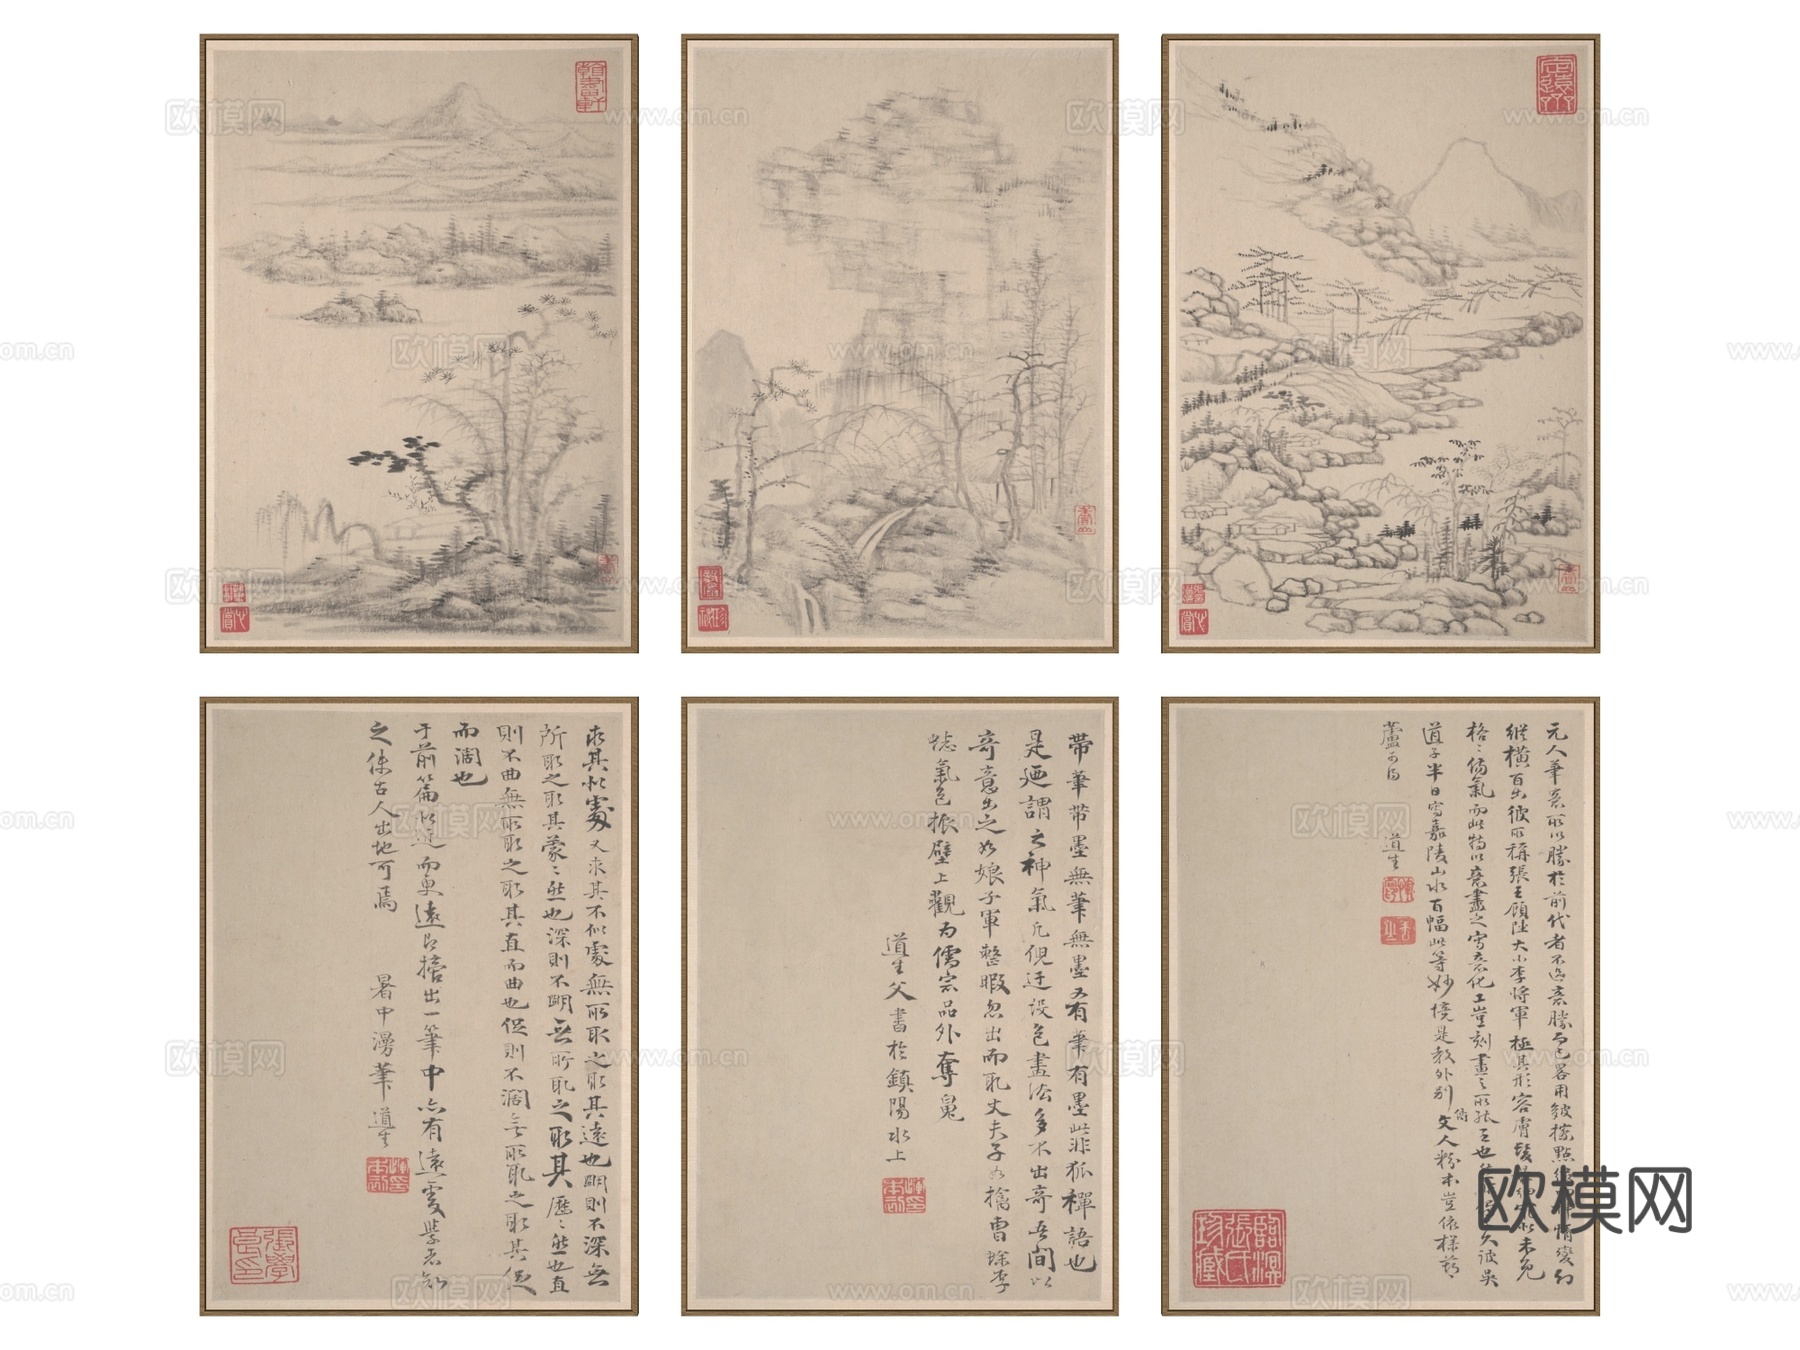 欧模网
www.om.cn
求其似處又求其不似處無所取之取其遠也明則不深無
所取之取其蒙〻然也深則不明無所取之取其歷〻然也直
則不曲無所取之取其直而曲也促則不濶無所取之取其促
而濶也
于前篇似近而更遠已出一筆中亦有遠處學者知
之古人出地可焉 暑中漫筆 道生
張學良印
帶筆帶墨無筆無墨又有筆有墨此非狐禪語也
是廼謂之神氣凡倪迂設色畫法多不出奇吾間以
奇意出之如娘子軍整暇忽出而取丈夫子如擒曹
氣色振壁上觀為儒宗品外奪鬼
道生父書於鎮陽水上
元人筆意所以勝於前代者不意勝而已略用皴擦點情變幻
縱橫百出彼所稱張王顧陸大小李將軍極其形容膚髮未免
格〻傷氣而此特以意盡之寫意化工豈刻畫之所能至也久彼吳
道子半日寫嘉陵山水百幅此等妙境是教外別傳文人粉本豈依樣葫
蘆可得 道生
臨溟張氏珍藏